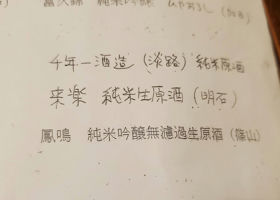 富久錦 純米吟醸 ひやおろし (加西)
千年一酒造 (淡路) 純米原酒
来楽 純米生原酒 (明石)
鳳鳴 純米吟醸無濾過生原酒 (篠山)